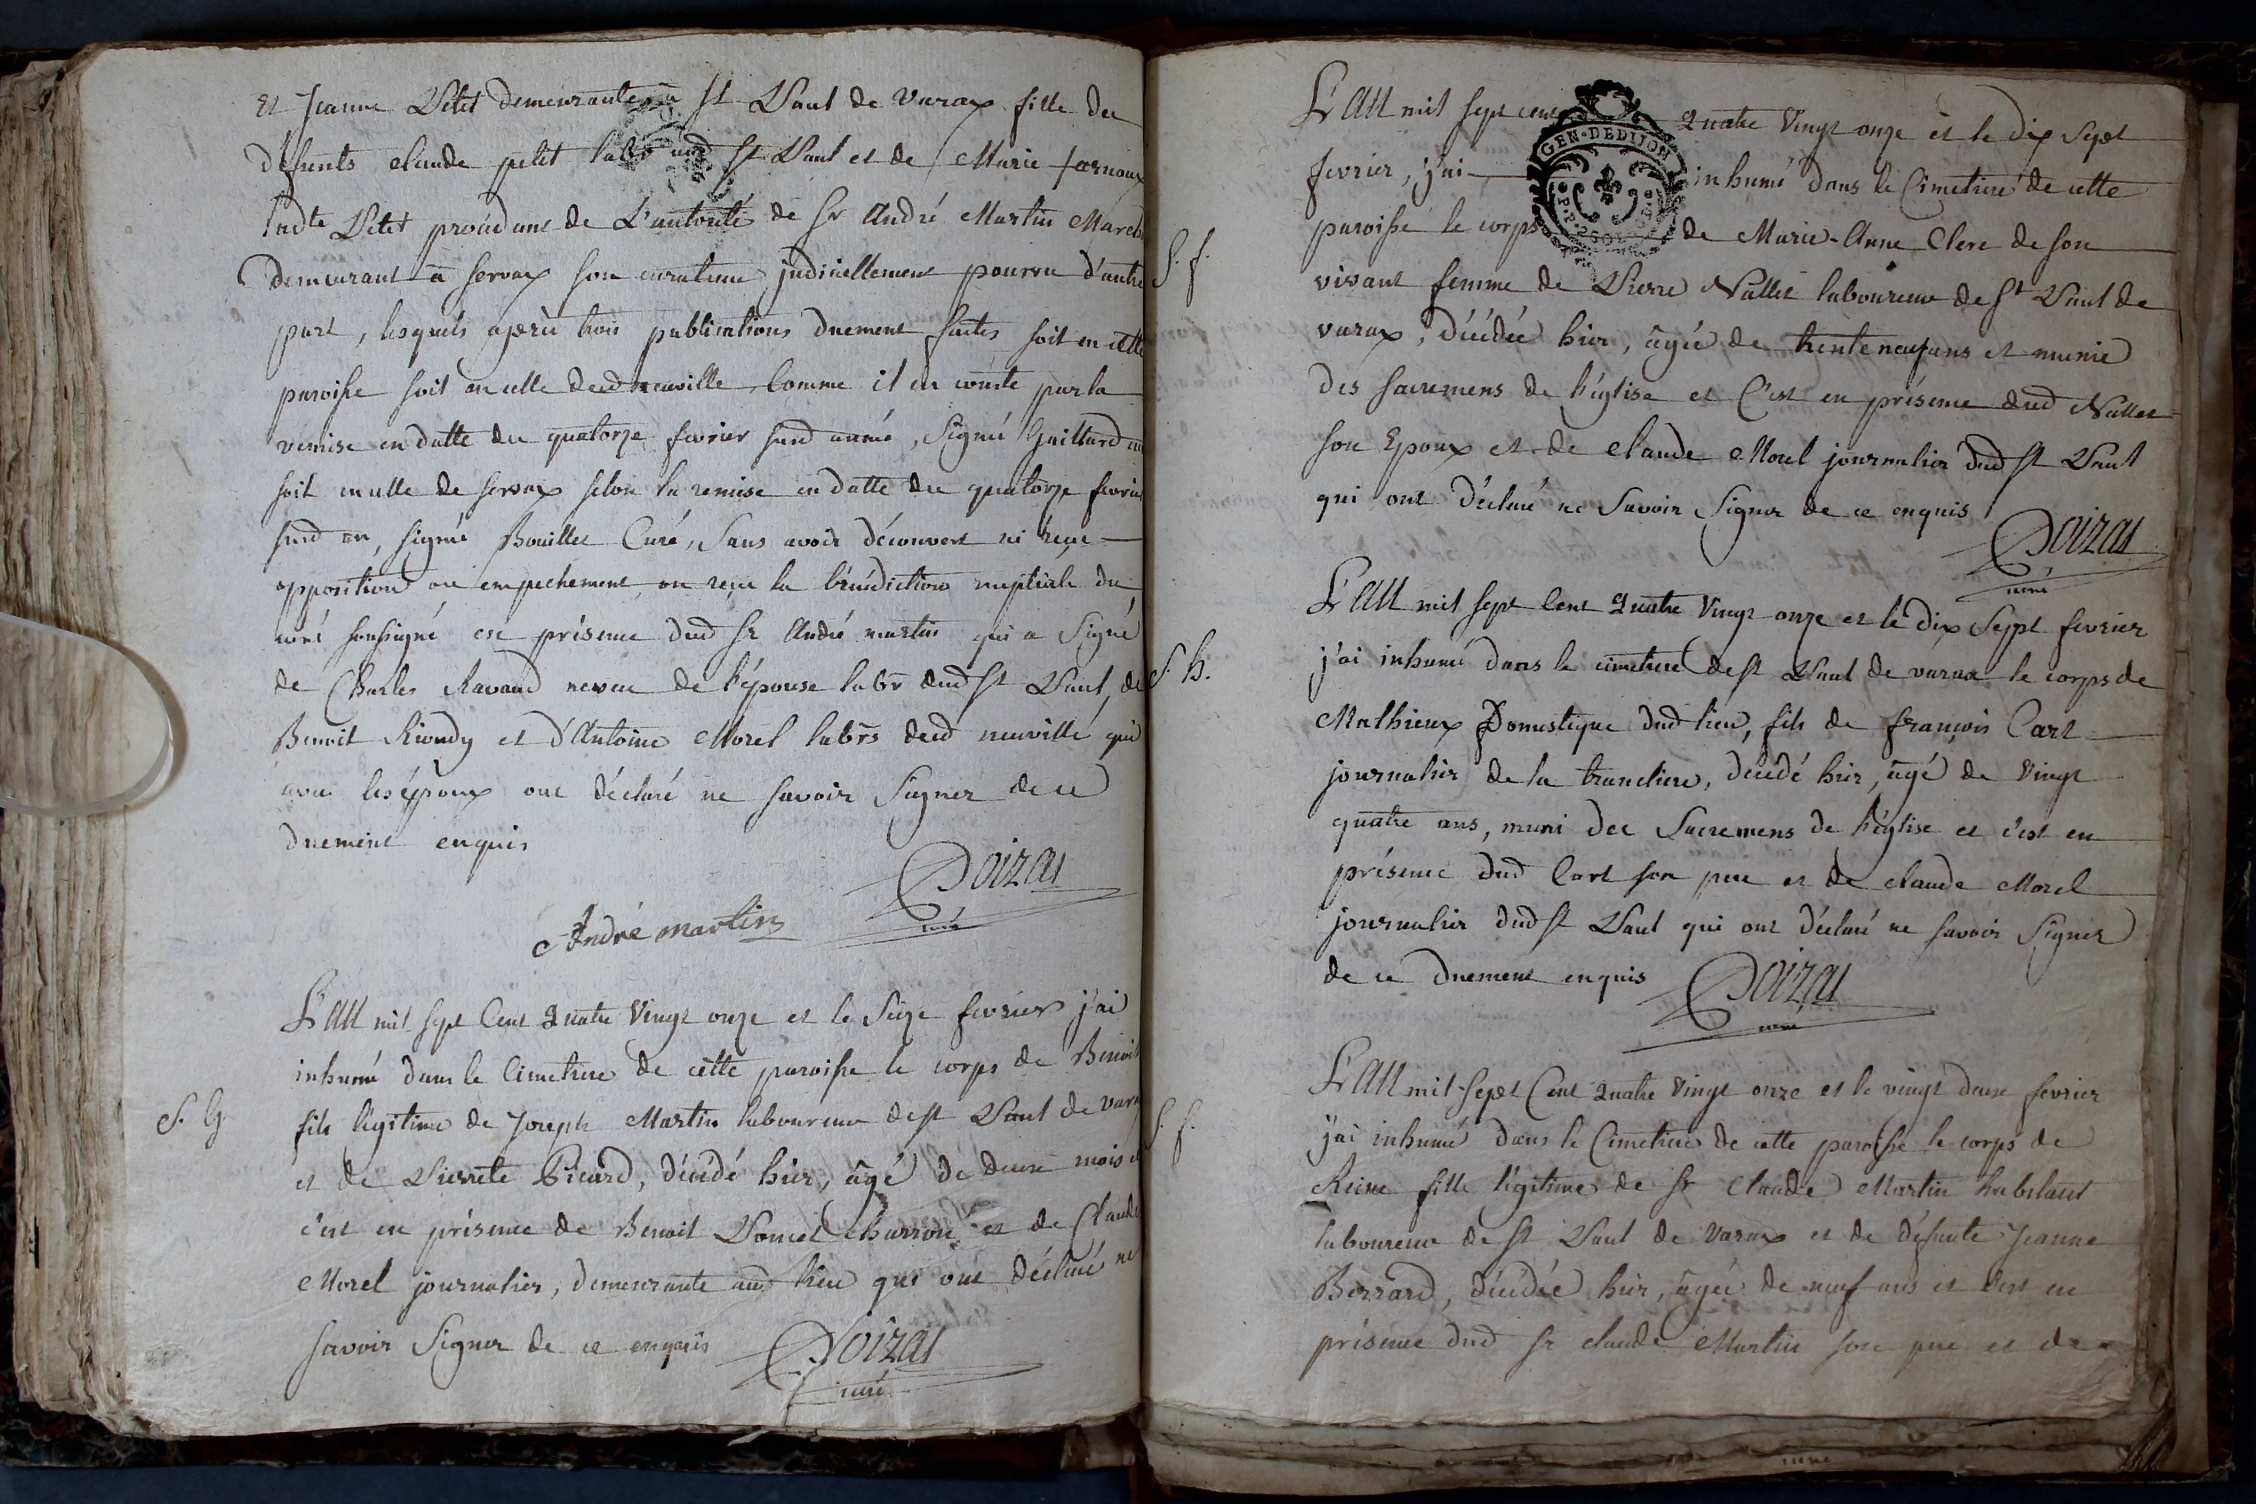 Et Jeanne Petit demeurante a St Paul de Varax fille de
défunts claude petit labr aud St Paul et de Marie fornoux
ladte Petit procédant de L'autorité de Sr André Martin March
demeurant a Servax son curateur judiciellement pourvu d'autre
part, lesquels après trois publications duement faites soit en cette
paroisse soit en celle dud neuville comme il en conste par la
remise en datte du quatorze fevrier susd année, Signé Guillard
soit en celle de Servax selon la remise en datte du quatorze fevrier
susd an, signé Bouillet Curé, Sans avoir découvert ni reçu
opposition ou empechement on reçu la bénédiction nuptiale du
curé soussigné en présence dud Sr André martin qui a Signé
de Charles Ravaud neveu de l'épouse labr dud St Paul, de
Benoit Riondy et d'Antoine Morel labrs dud neuville qui
avec les époux ont déclaré ne savoir Signer de ce
duement enquis
Poizat
curé
André martin
L'AN mil sept Cent Quatre Vingt onze et le Seize fevrier j'ai
inhumé dans le Cimetiere de cette paroisse le corps de Benoit
S. G
fils légitime de Joseph Martin laboureur de St Paul de Varax
et de Pierrette Picard, décédé hier, âgé de deux mois et
c'est en présence de Benoit Poncet charron et de Claude
Morel journalier, demeurants aud lieu qui ont déclaré ne
savoir Signer de ce enquis
Poizat
curé
L'AN mil sept cent Quatre Vingt onze et le dix Sept
GEN·DEDIJON
fevrier, j'ai inhumé dans le Cimetiere de cette
paroisse le corps de Marie-Anne Clere de son
S. f.
vivant femme de Pierre Nallet laboureur de St Paul de
varax, décédée hier, âgée de trente neuf ans et munie
des sacremens de l'église et C'est en présence dud Nallet
son Epoux et de Claude Morel journalier dud St Paul
qui ont déclaré ne Savoir Signer de ce enquis
Poizat
curé
L'AN mil sept Cent Quatre Vingt onze et le dix Sept fevrier
S. h.
j'ai inhumé dans le cimetiere de St Paul de varax le corps de
Mathieux Domestique dud lieu, fils de françois Cart
journalier de la trancliere, décédé hier, âgé de Vingt
quatre ans, muni des Sacremens de l'église et c'est en
présence dud Cart son pere et de claude Morel
journalier dud St Paul qui ont déclaré ne savoir Signer
de ce duement enquis
Poizat
curé
L'AN mil-sept Cent Quatre Vingt onze et le vingt deux fevrier
S. f.
j'ai inhumé dans le Cimetiere de cette paroisse le corps de
Reine fille légitime de Sr Claude Martin habitant
laboureur de St Paul de Varax et de défunte Jeanne
Berrard, décédée hier, âgée de neuf ans et c'est en
présence dud Sr claude Martin son pere et de